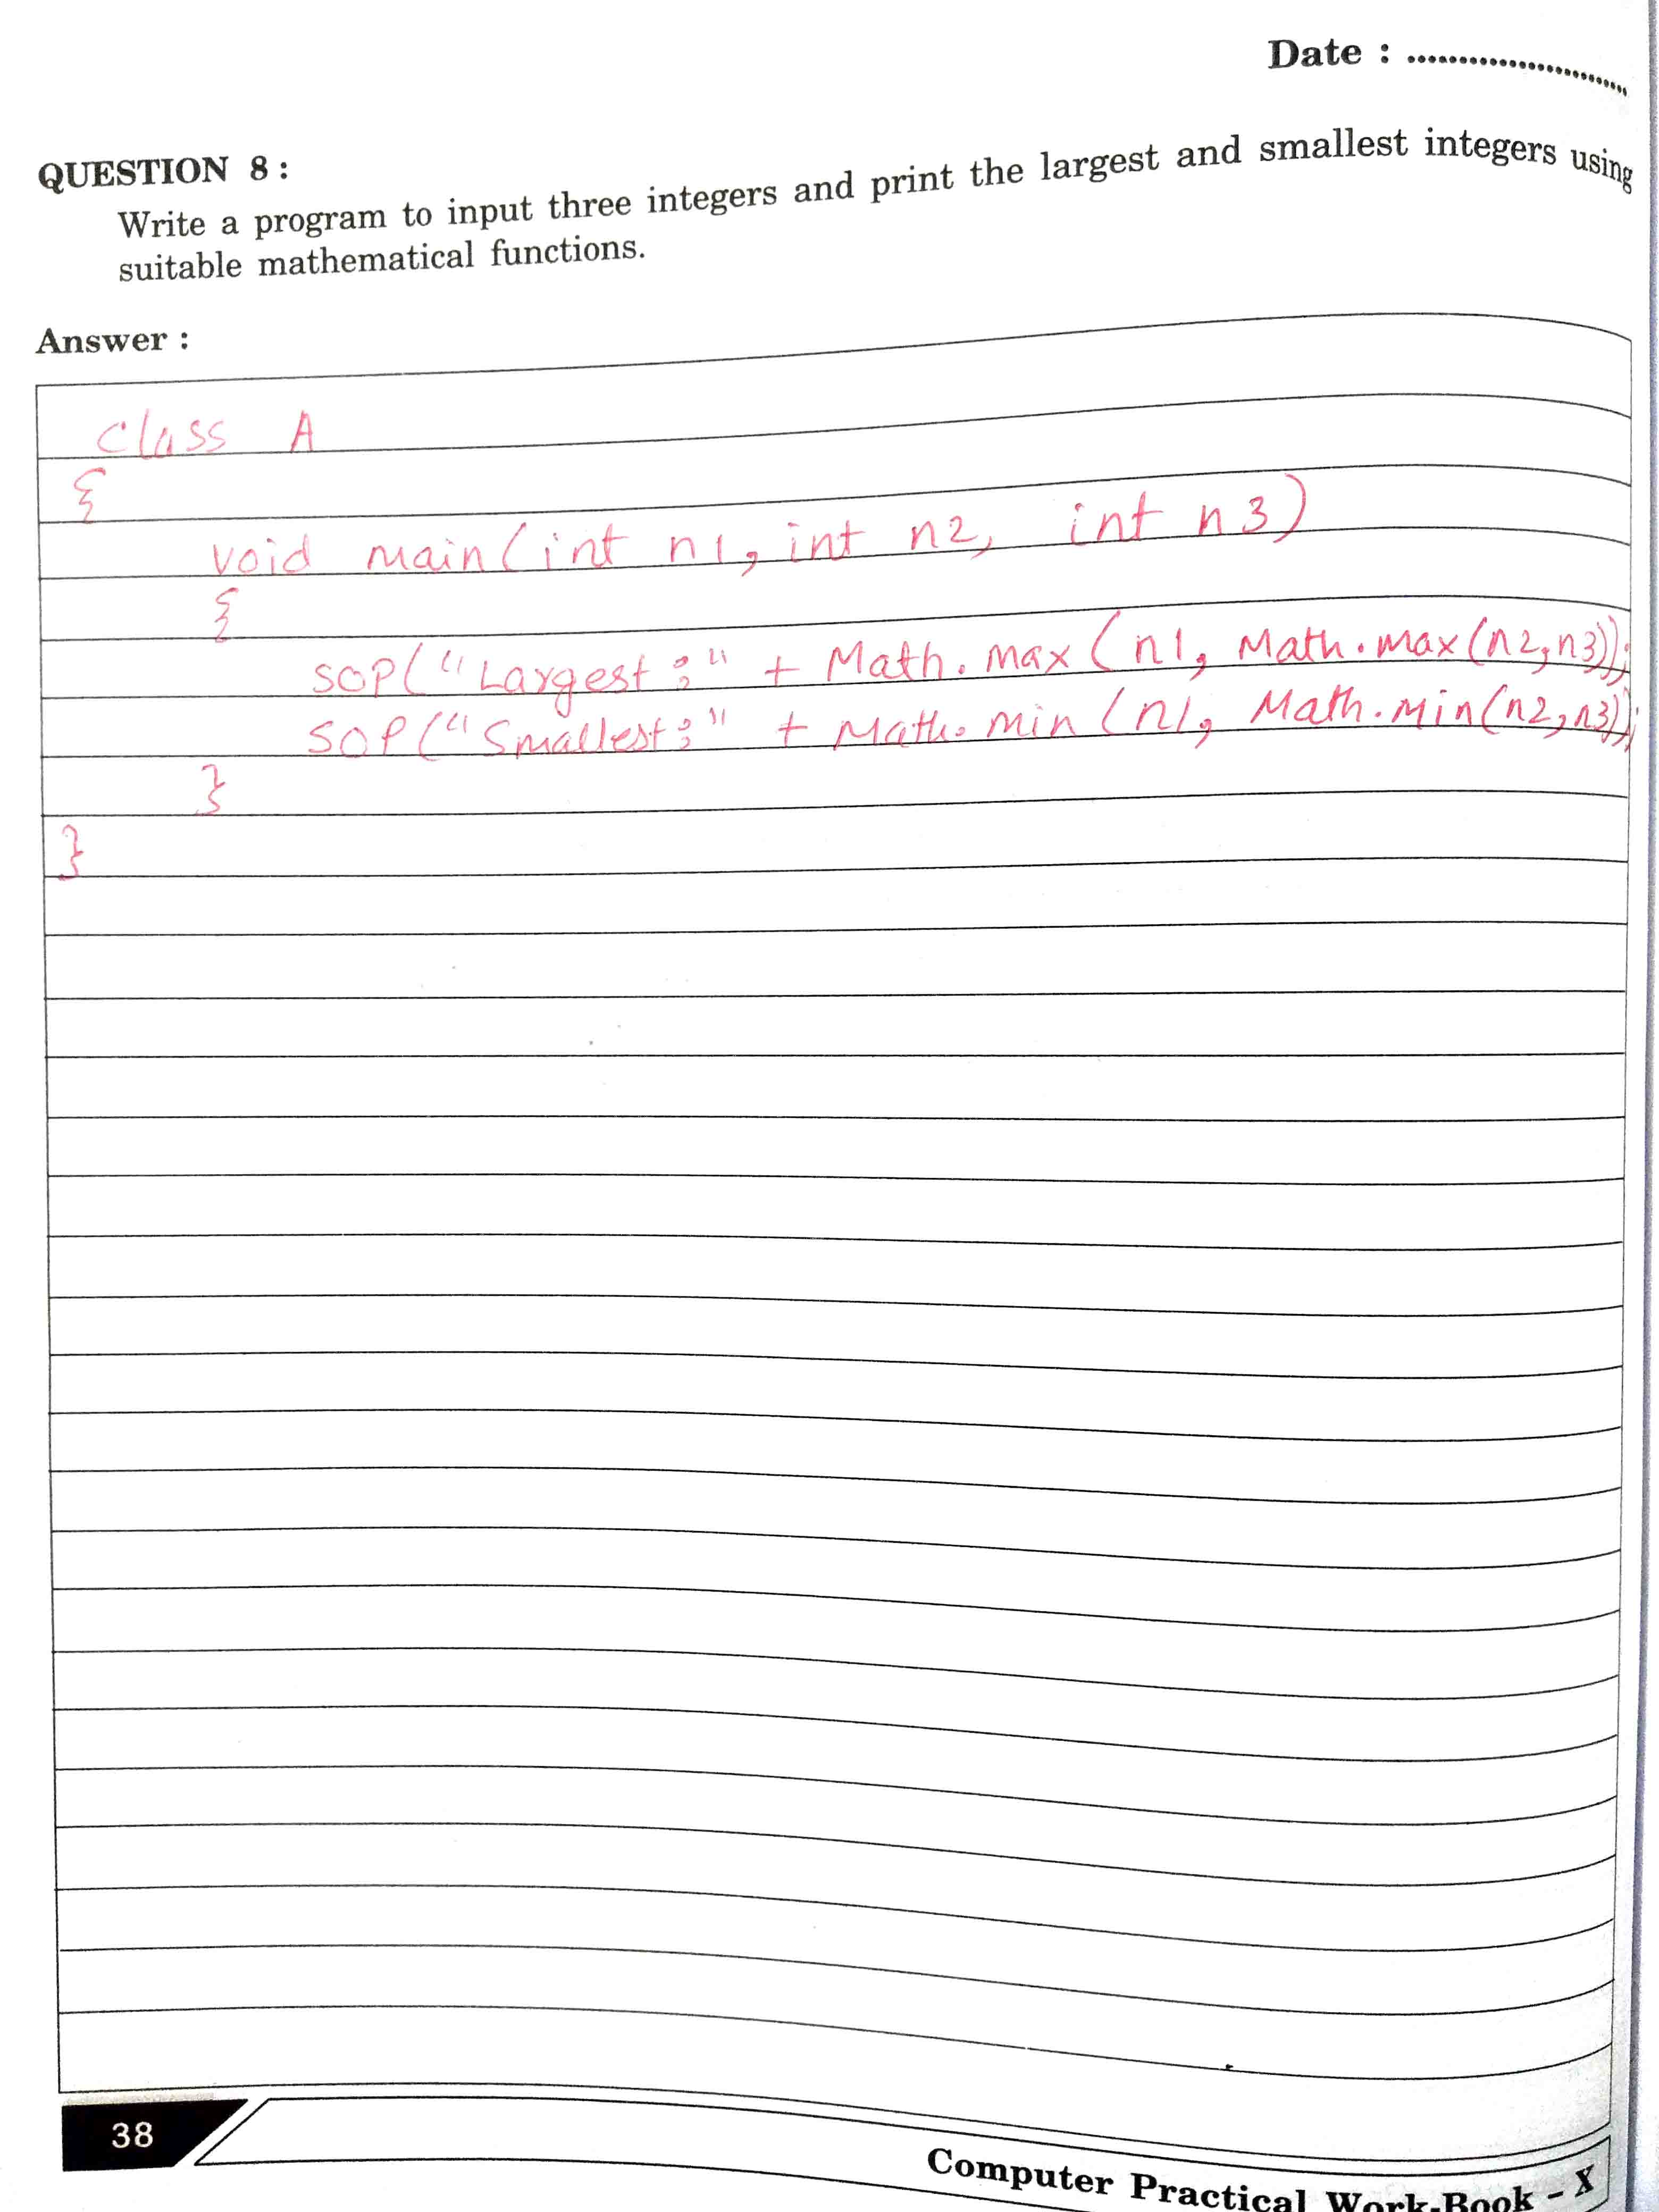 Date : ..........................
QUESTION 8 :
Write a program to input three integers and print the largest and smallest integers using
suitable mathematical functions.
Answer :
class A
{
void main(int n1, int n2, int n3)
{
SOP("Largest:" + Math.max(n1, Math.max(n2,n3));
SOP("Smallest:" + Math.min(n1, Math.min(n2,n3));
}
}
38
Computer Practical Work-Book - X